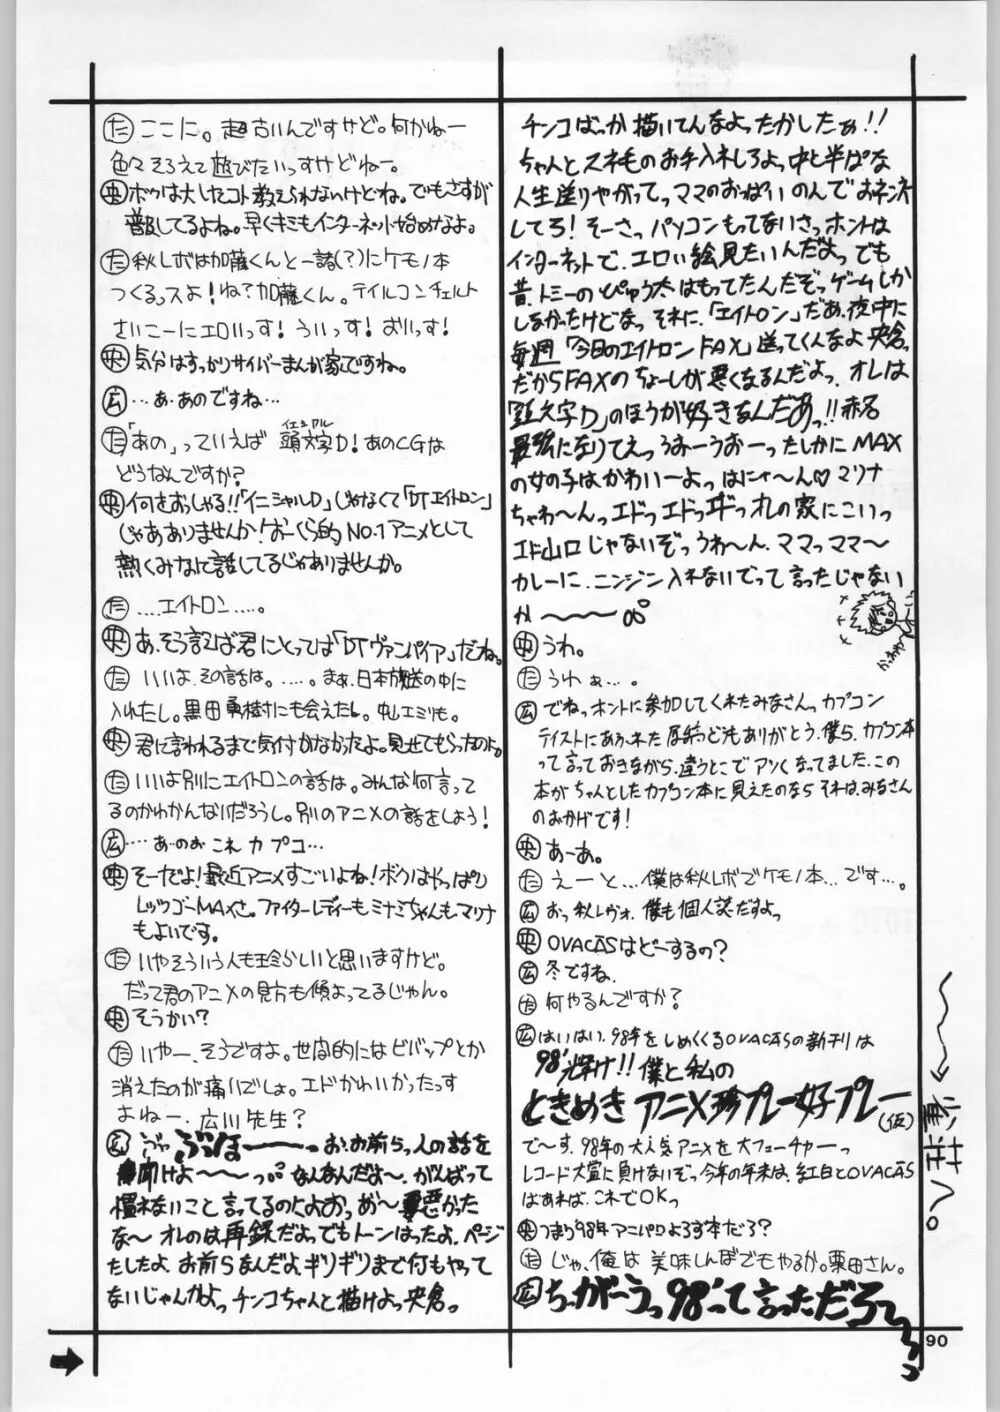 た ここに。超古いんですけど。何かねー
色々そろえて遊びたいっすけどねー。
央 ボクは大したコト教えられないけどね。でもさすが
普及してるよね。早くキミもインターネット始めなよ。
た 秋レボは加藤くんと一諸(?)にケモノ本
つくるっスよ!ね?加藤くん。テイルコンチェルト
さいこーにエロいっす!ういっす!おいっす!
央 気分はすっかりサイバーまんが家ですね。
広 …あ・あのですね…
た「あの」っていえば 頭文字D!あのCGは
イニシャル
どうなんですか?
央 何をおっしゃる!!「イニシャルD」じゃなくて「DTエイトロン」
じゃあありませんか!おーくら的No.1アニメとして
熱くみなで話してるじゃありませんか。
た ….エイトロン….。
央 あ、そう言えば君にとっては「DTヴァンパイア」だね。
た いいよ、その話は。……。まぁ、日本放送の中に
入れたし。黒田勇樹にも会えたし。中山エミリも。
央 君に言われるまで気付かなかったよ。見せてもらったのよ。
た いいよ別にエイトロンの話は。みんな何言って
るのかわかんないだろうし。別のアニメの話をしよう!
広 …あ…のお これ カプコ…
央 そーだよ!最近アニメすごいよね!ボクはやっぱり
レッツゴーMAXさ。ファイターレディーもミナミちゃんも、マリナ
もよいです。
た いやそういう人も珍らしいと思いますけど。
だって君のアニメの見方も傾よってるじゃん。
央 そうかい?
た いやー、そうですよ。世間的にはビバップとか
消えたのが痛いでしょ。エドかわいかったっす
よねー、広川先生?
広 ぶっ ぶっほ〜〜〜っ お、お前ら、人の話を
聞けよ〜〜〜っ。なんなんだよ〜、がんばって
慣れないこと言ってるのによおっ、あ〜悪かった
な〜 オレのは再録だよっでもトーンはったよ、ページ
たしたよ、お前らなんだよ、ギリギリまで何もやって
ないじゃんかよっ チンコちゃんと描けよっ央倉っ
チンコばっか描いてんなよったかしたぁ!!
ちゃんとスネ毛のお手入れしろよっ中と半ぱな
人生送りやがってっママのおっぱいのんでおネンネ
してろ!そーさっパソコンもってないさっホントは
インターネットで、エロい絵見たいんだよっでも
昔、トミーのぴゅう太はもってたんだぞっゲームしか
しなかったけどなっそれに、「エイトロン」だあ、夜中に
毎週「今日のエイトロンFAX」送ってくんなよ央倉っ
だからFAXのちょーしが悪くなるんだよっ、オレは
「頭文字D」のほうが好きなんだあっ!!赤名
最強になりてえっうおーうおーったしかにMAX
の女の子はかわいーよっはにゃ〜ん♡マリナ
ちゃわ〜んっエドっエドっエドっオレの家にこいっ
エド山口じゃないぞっうわ〜ん、ママっママ〜
カレーに、ニンジン入れないでって言ったじゃない
か〜〜〜〜。
央 うわ。
た うわぁ…。
広 でねっホントに参加してくれたみなさんっカプコン
テイストにあふれた原稿っどうもありがとう、僕ら、カプコン本
って言っておきながら、違うとこでアツくなってました。この
本がちゃんとしたカプコン本に見えたのなら それは、みなさん
のおかげです!
央 あーあ。
た えーと…僕は秋レボでケモノ本…です…。
広 おっ秋レヴォ、僕も個人誌だすよっ
央 OVACĀSはどーするの?
広 冬ですね。
た 何やるんですか?
広 はいはい、98年をしめくくるOVACĀSの新刊は
98'輝け!!僕と私の
ときめきアニメ珍プレー好プレー(仮)
で〜す、98年の大人気アニメを大フューチャーっ
レコード大賞に負けないぞっ今年の年末は、紅白とOVACĀS
はあれば、これでOKっ
央 つまり98年アニパロよろず本だろ?
た じゃ、俺は 美味しんぼでもやるか。栗田さん。
広 ちっがーうっ98'って言っただろ〜〜っ
90